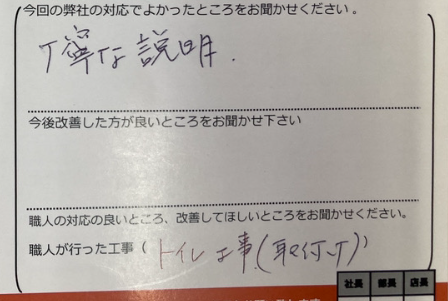 今回の弊社の対応でよかったところをお聞かせください。
丁寧な説明.
今後改善した方が良いところをお聞かせ下さい
職人の対応の良いところ、改善してほしいところをお聞かせください。
職人が行った工事（トイレ工事（取付け））
社長 部長 店長